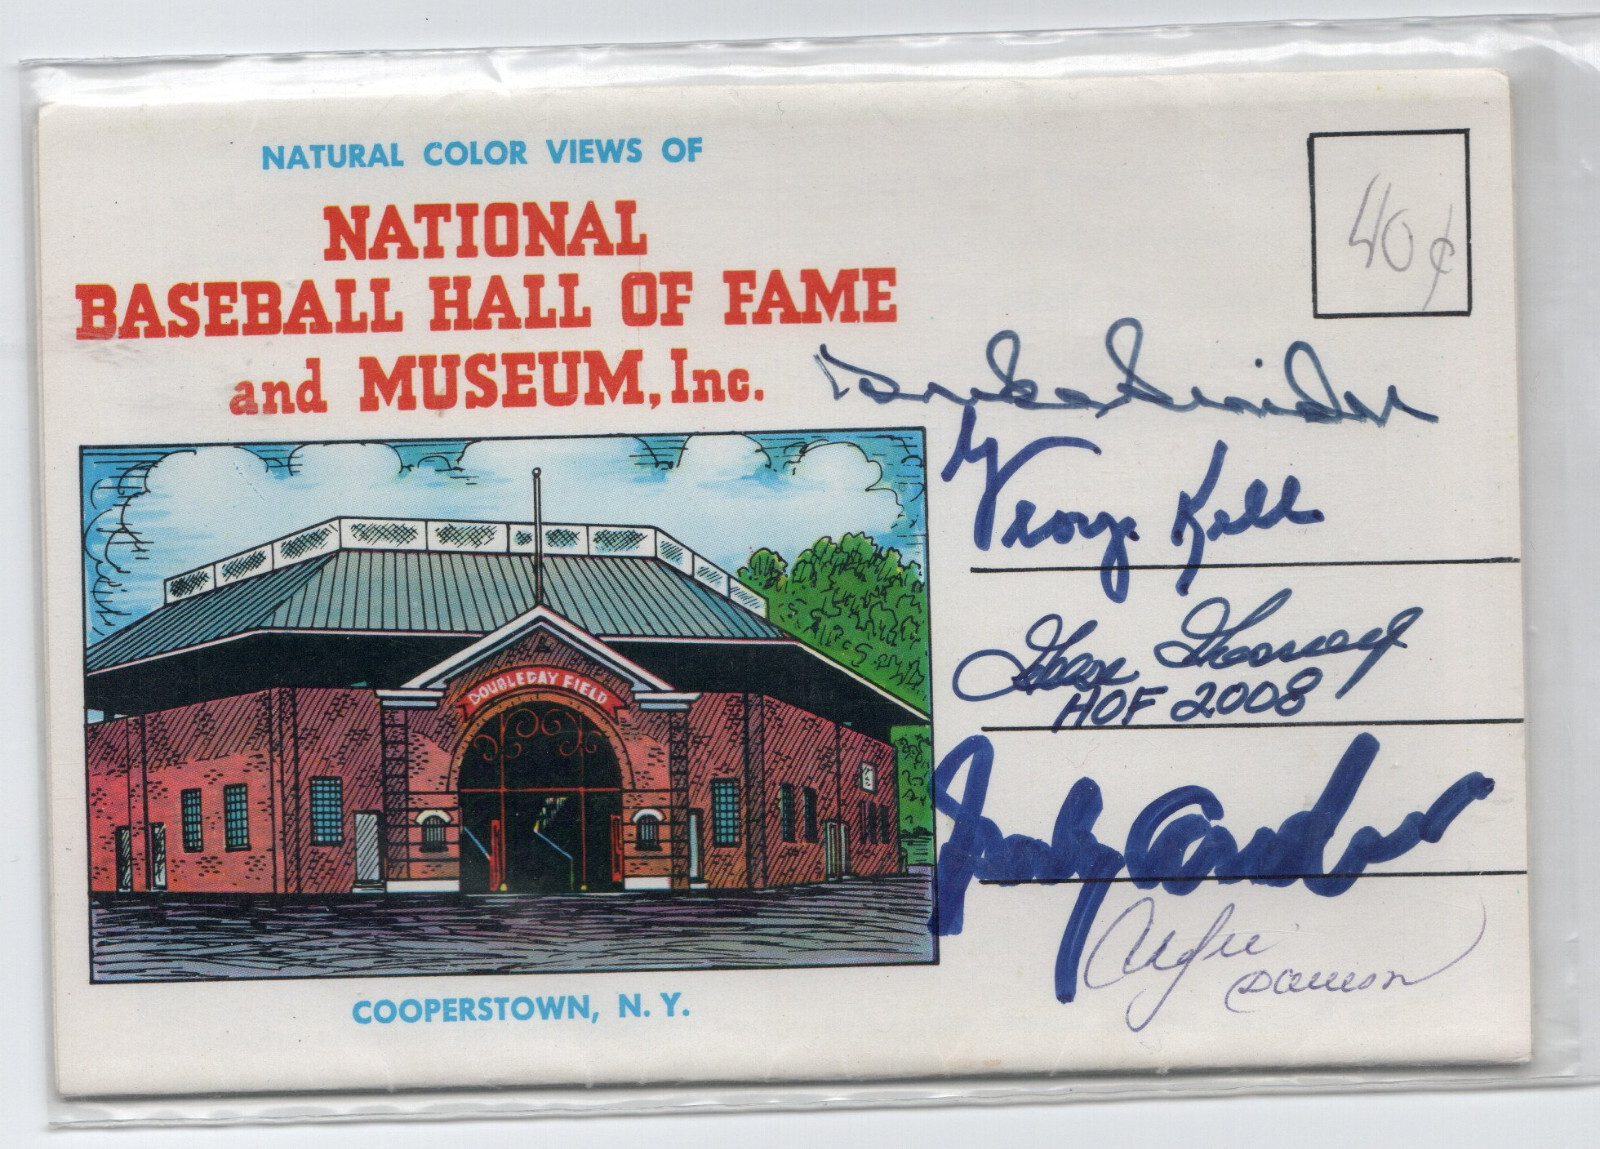 NATURAL COLOR VIEWS OF
NATIONAL
BASEBALL HALL OF FAME
and MUSEUM, Inc.
40¢
Duke Snider
George Kell
DOUBLEDAY FIELD
Goose Gossage
HOF 2008
Sparky Anderson
Andre
Dawson
COOPERSTOWN, N. Y.